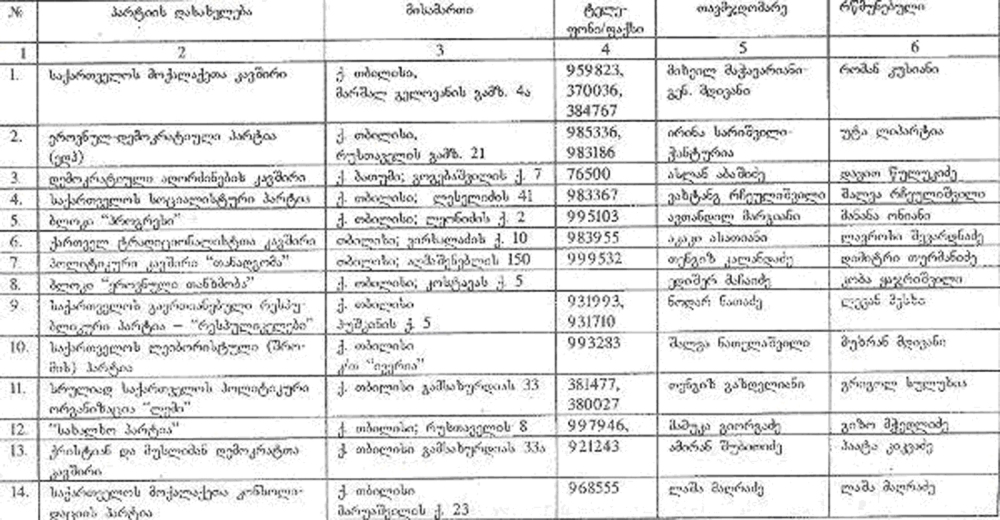 № პარტიის დასახელება მისამართი ტელე- თავმჯდომარე რწმუნებული
ფონი/ფაქსი
1 2 3 4 5 6
1. საქართველოს მოქალაქეთა კავშირი ქ. თბილისი, 959823, მიხეილ მაჭავარიანი- რომან კუსიანი
მარშალ გელოვანის გამზ. 4ა 370036, გენ. მდივანი
384767
2. ეროვნულ-დემოკრატიული პარტია ქ. თბილისი, 985336, ირინა სარიშვილი- უტა ლიპარტია
(ედპ) რუსთაველის გამზ. 21 983186 ჭანტურია
3. დემოკრატიული აღორძინების კავშირი ქ. ბათუმი; გოგებაშვილის ქ. 7 76500 ასლან აბაშიძე დავით წულუკიძე
4. საქართველოს სოციალისტური პარტია ქ. თბილისი; ლესელიძის 41 983367 ვახტანგ რჩეულიშვილი შალვა რჩეულიშვილი
5. ბლოკი "პროგრესი" ქ. თბილისი; ლეონიძის ქ. 2 995103 ავთანდილ მარგიანი მანანა ონიანი
6. ქართველ ტრადიციონალისტთა კავშირი თბილისი; ვირსალაძის ქ. 10 983955 აკაკი ასათიანი ლავროსი შევარდნაძე
7. პოლიტიკური კავშირი "თანადგომა" თბილისი; აღმაშენებლის 150 999532 თენგიზ კალანდაძე დიმიტრი თურმანიძე
8. ბლოკი "ეროვნული თანხმობა" ქ. თბილისი; კოსტავას ქ. 5 ედიშერ მაჩაიძე კობა ყაჯრიშვილი
9. საქართველოს გაერთიანებული რესპუ- ქ. თბილისი 931993, ნოდარ ნათაძე ლევან მესხი
ბლიკური პარტია – "რესპულიკელები" პუშკინის ქ. 5 931710
10. საქართველოს ლეიბორისტული (შრო- ქ. თბილისი 993283 შალვა ნათელაშვილი მუხრან მდივანი
მის) პარტია კ/თ "ივერია"
11. სრულიად საქართველოს პოლიტიკური ქ. თბილისი გამსახურდიას 33 381477, თენგიზ გაზდელიანი გრიგოლ სულუხია
ორგანიზაცია "ლემი" 380027
12. "სახალხო პარტია" ქ. თბილისი; რუსთაველის 8 997946, მამუკა გიორგაძე გიზო მჭედლიძე
13. ქრისტიან და მუსლიმან დემოკრატთა ქ. თბილისი გამსახურდიას 33ა 921243 ამირან შუბითიძე პაატა კიკვაძე
კავშირი
14. საქართველოს მოქალაქეთა კონსოლი- ქ. თბილისი 968555 ლაშა მაღრაძე ლაშა მაღრაძე
დაციის პარტია მარუაშვილის ქ. 23